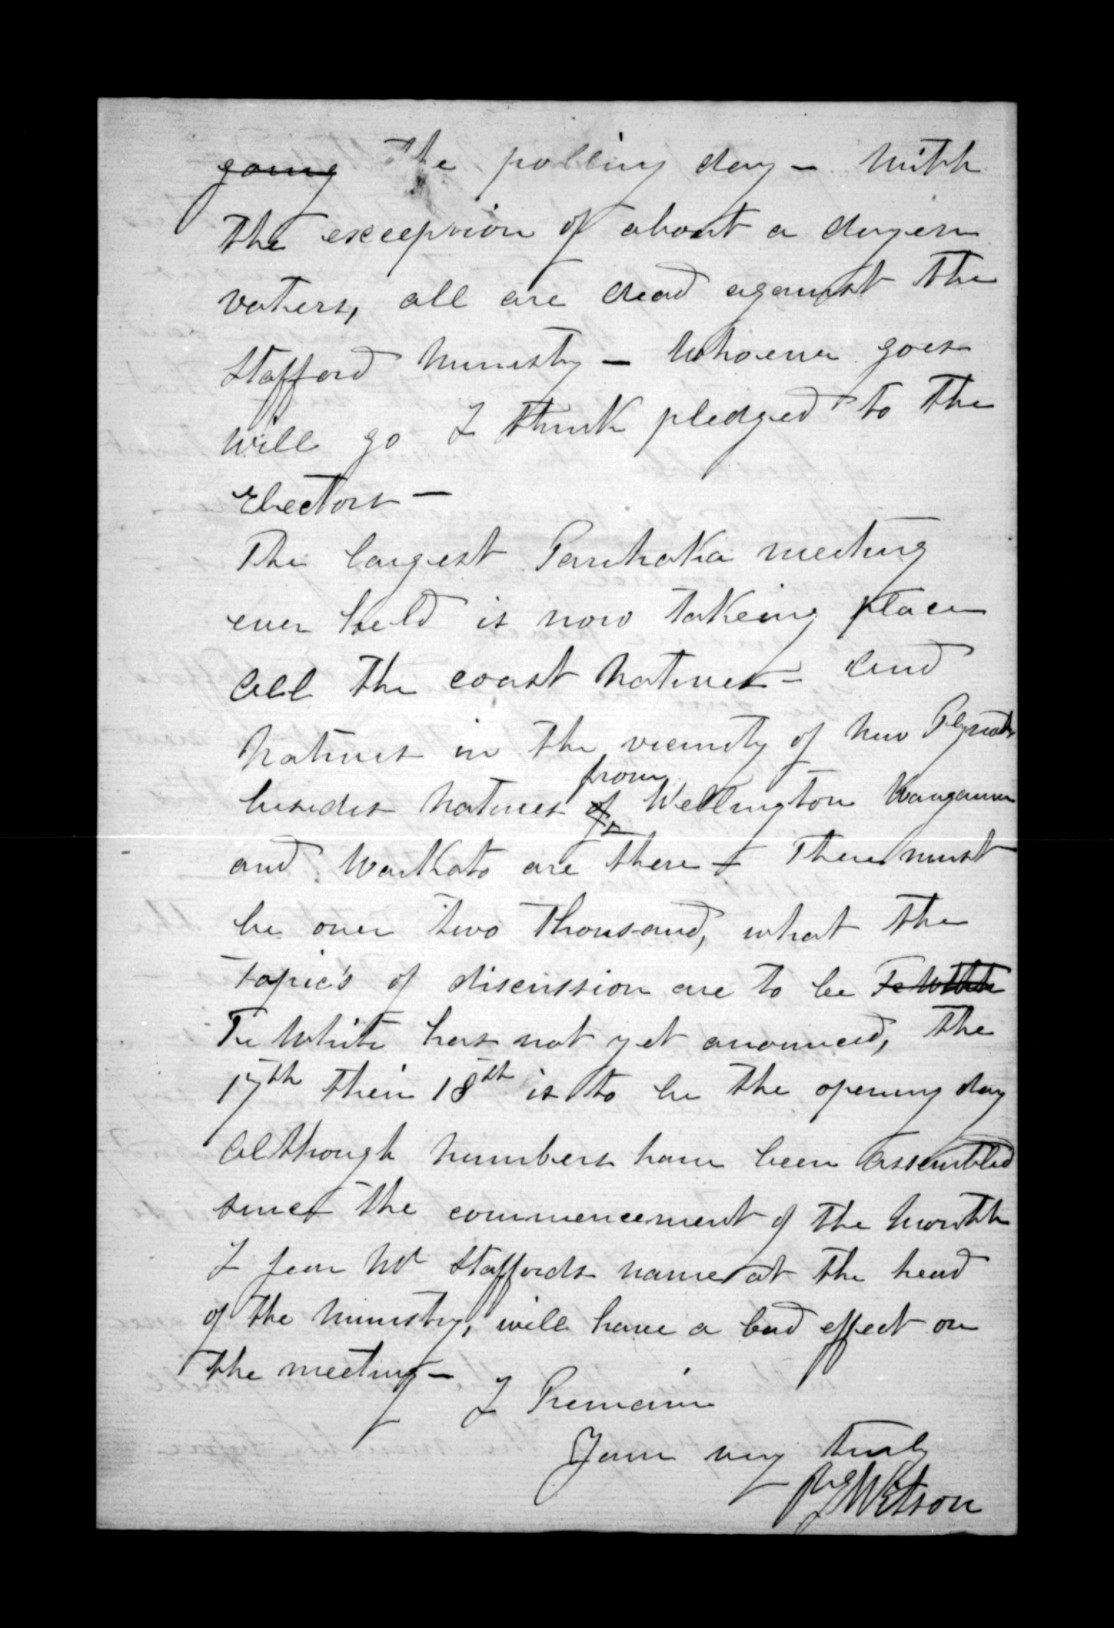 going the polling day - With
the exception of about a dozen
voters, all are dead against the
Stafford Ministry - Whoever goes
will go I think pledged to the
Electors -
The largest Parihaka meeting
ever held is now takeing place
all the coast Natives - and
Natives in the vicinity of New Plymouth
besides Natives from Wellington Wanganui
and Waikato are there - There must
be over two thousand, what the
topic's of discussion are to be Te Whith
Te White has not yet anounced, the
17th then 18th is to be the opening day
Although numbers have been assembled
since the commencement of the Month
I fear Mr Staffords name at the head
of the Ministry, will have a bad effect on
the meeting -
I Remain
Your very truly
Wetson